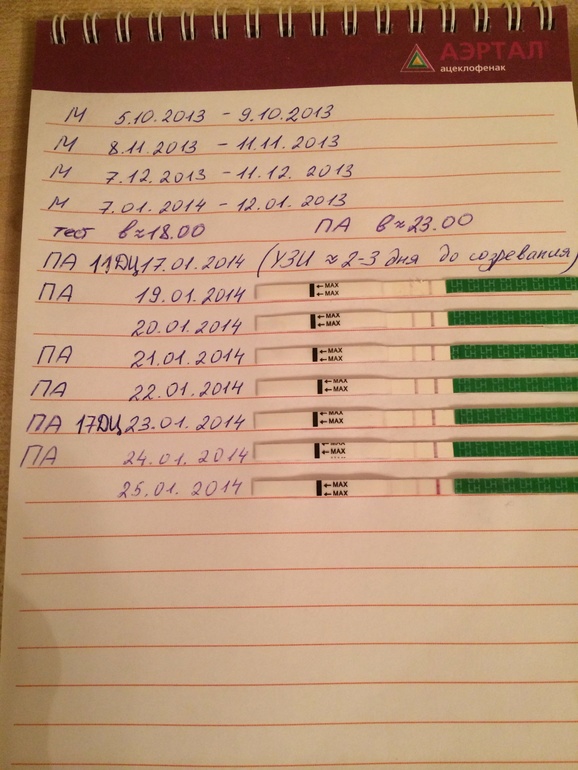 АЭРТАЛ®
ацеклофенак
М 5.10.2013 - 9.10.2013
М 8.11.2013 - 11.11.2013
М 7.12.2013 - 11.12.2013
М 7.01.2014 - 12.01.2013
тест в≈18.00 ПА в≈23.00
ПА 11ДЦ 17.01.2014 (УЗИ ≈ 2-3 дня до созревания)
ПА 19.01.2014 ←MAX
20.01.2014 ←MAX
ПА 21.01.2014 ←MAX
ПА 22.01.2014 ←MAX
ПА 17ДЦ 23.01.2014 ←MAX
ПА 24.01.2014 ←MAX
25.01.2014 ←MAX ←MAX